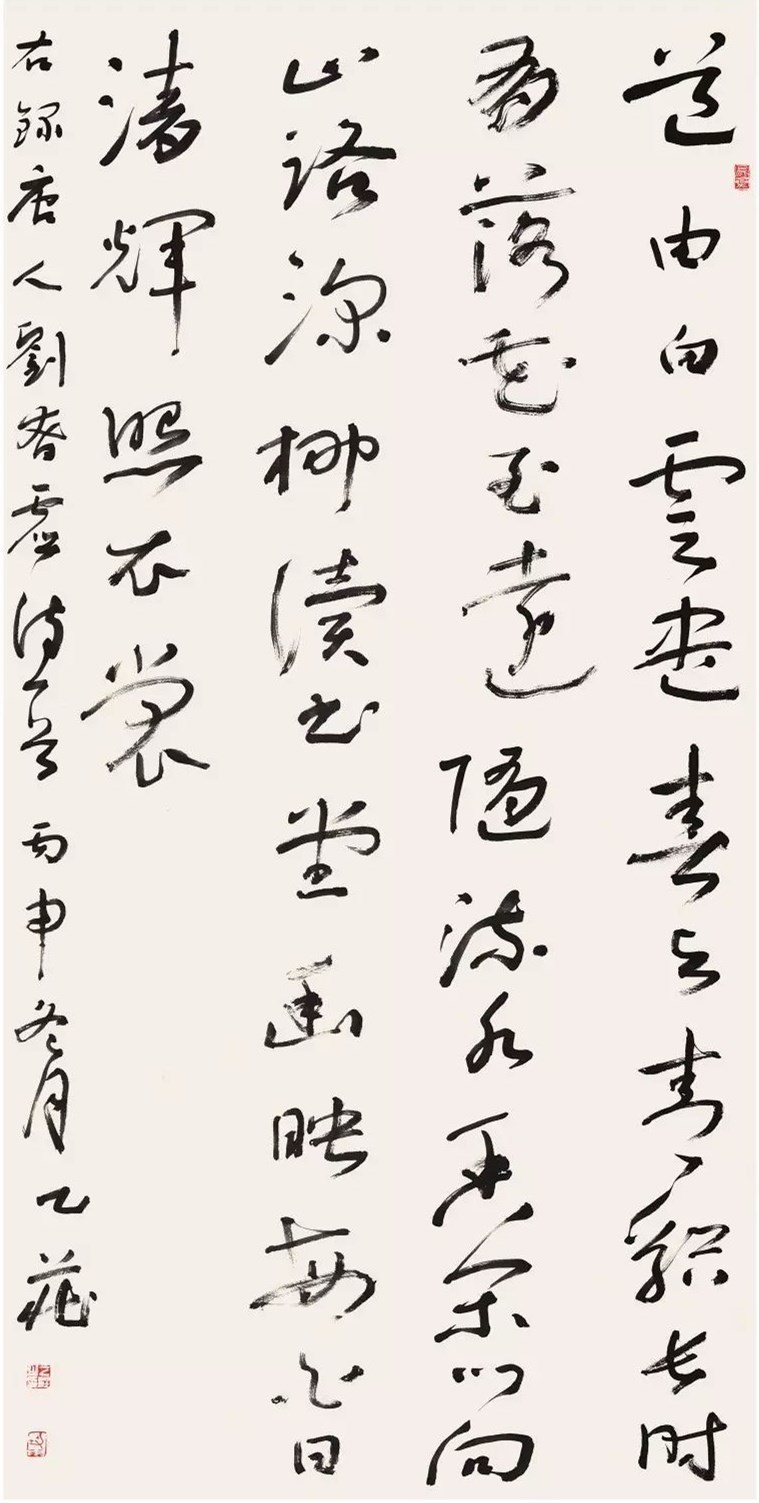 道由白雲盡春与青谿長时
有落花至遠隨流水香閑门向
山路深柳讀书堂幽映每白日
清輝照衣裳
右録唐人劉眘虛詩一首丙申冬月乙莊